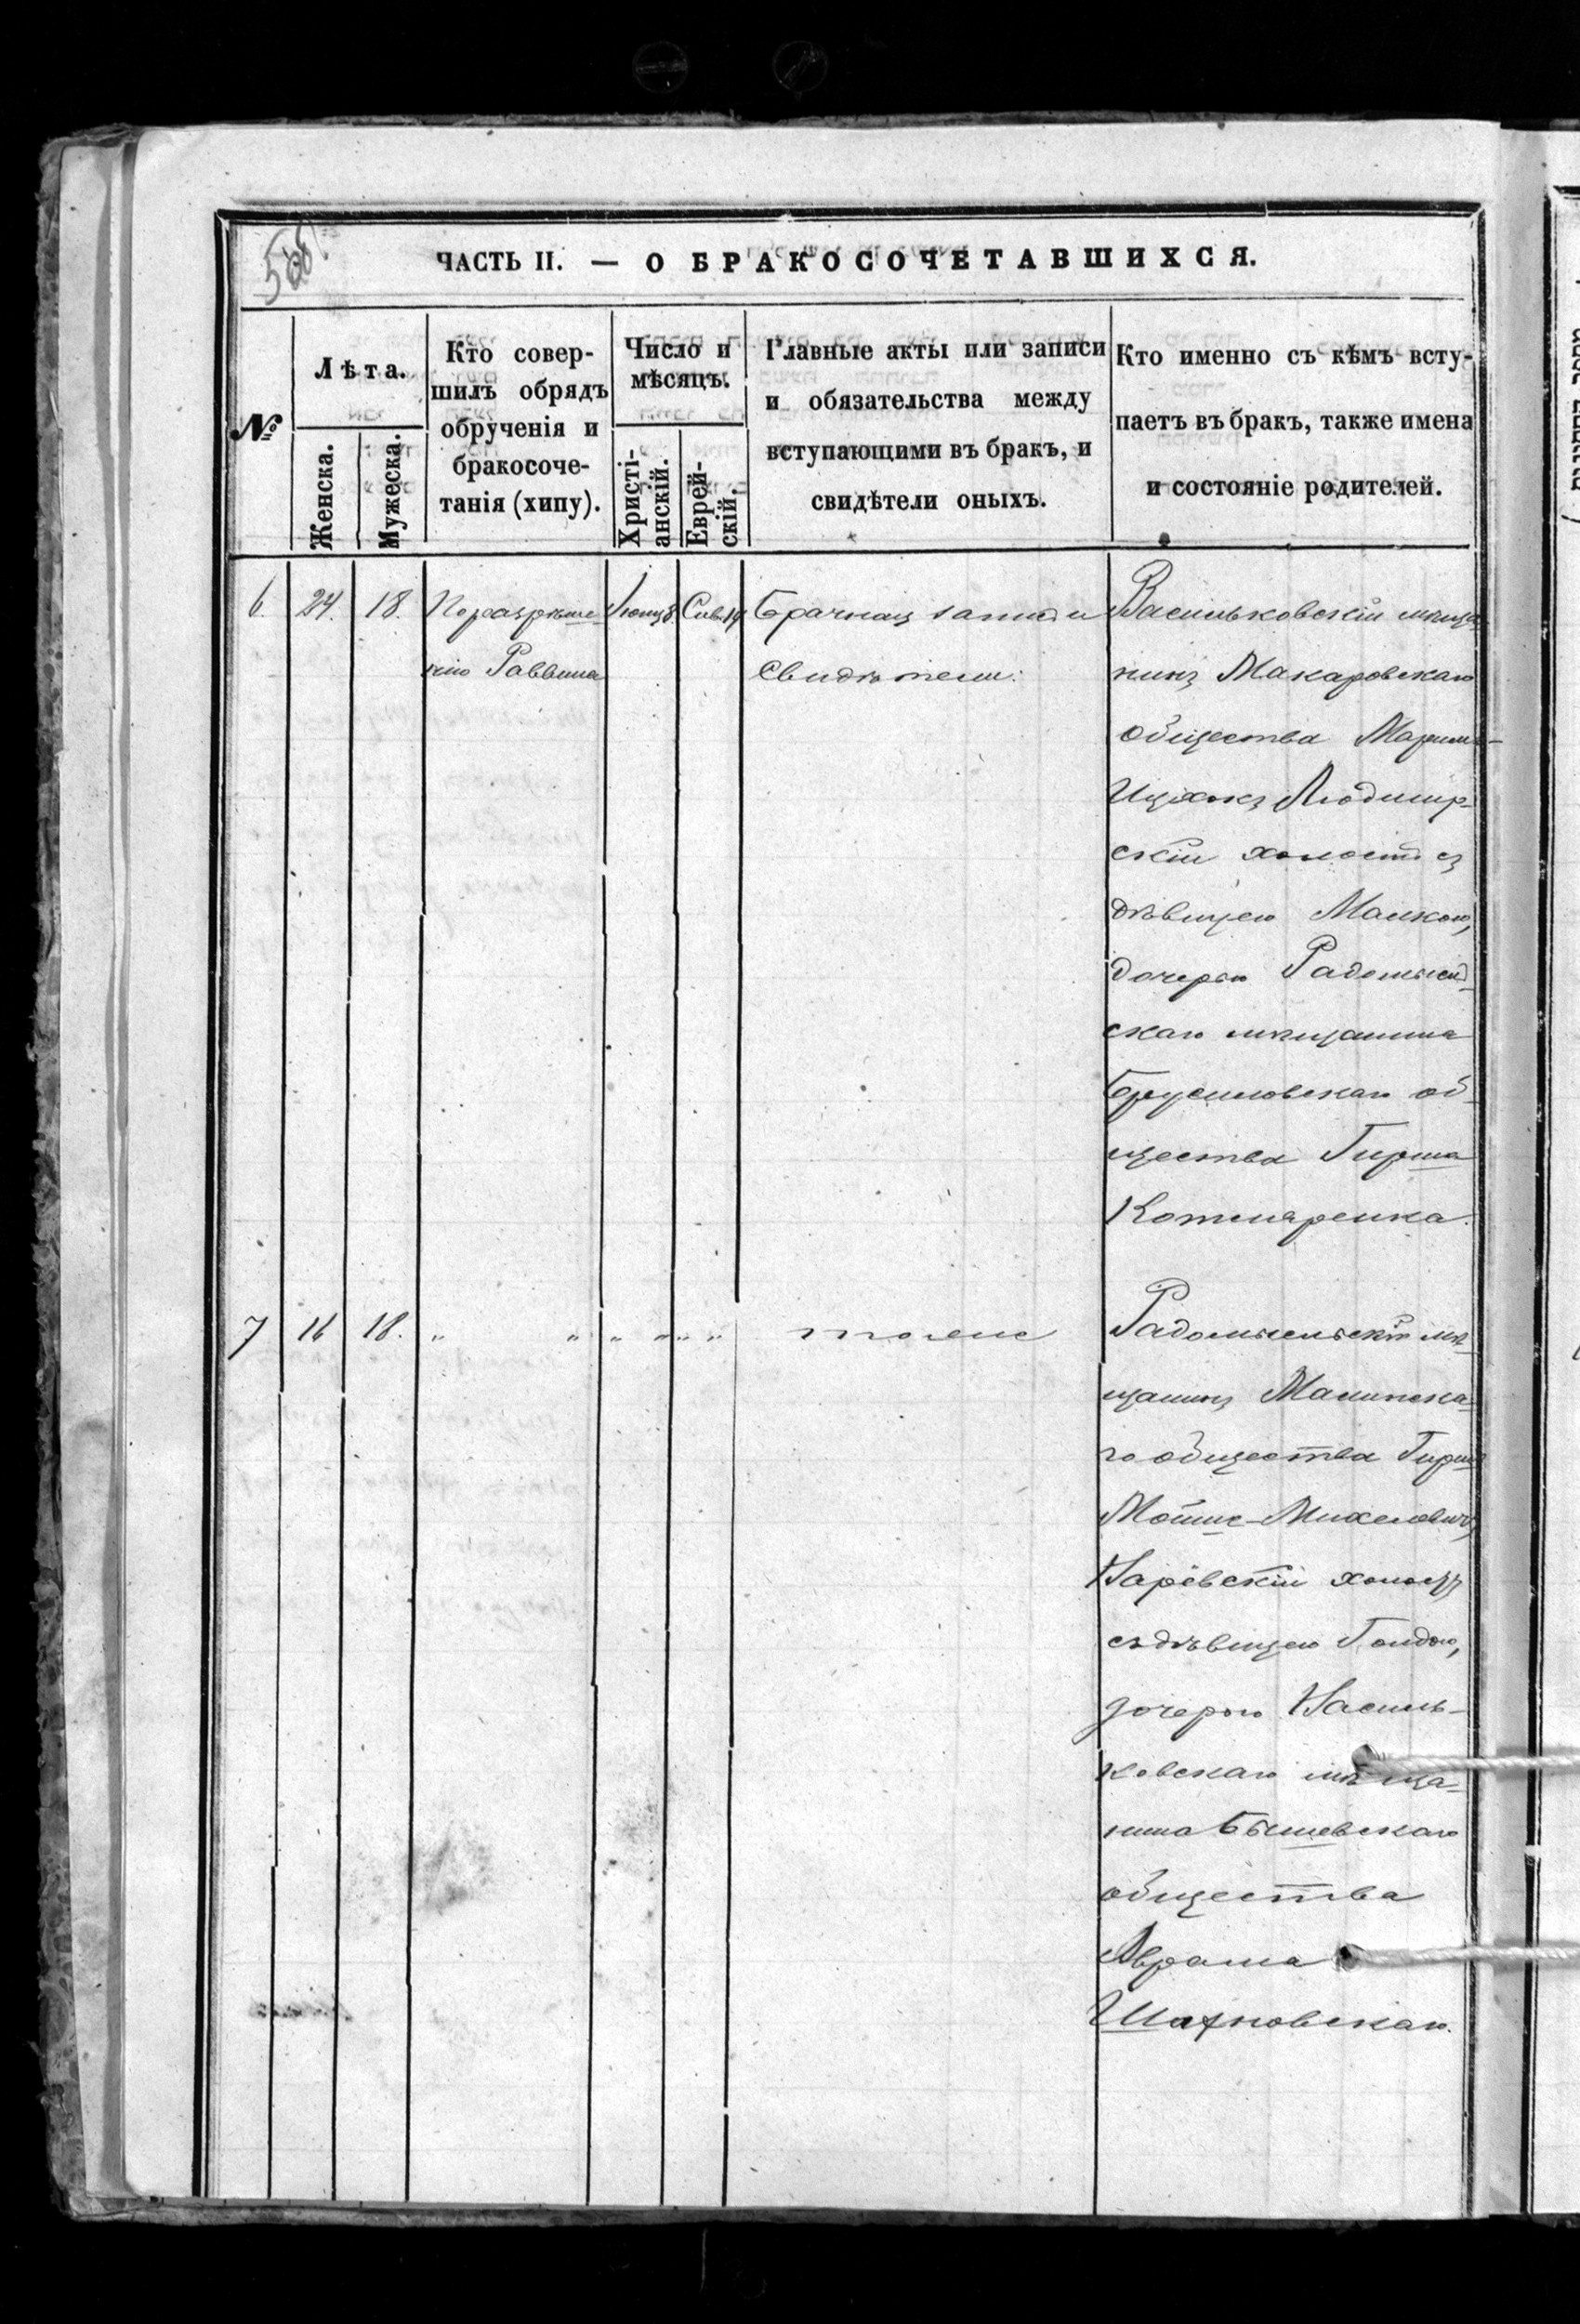 ЧАСТЬ II. — О БРАКОСОЧЕТАВШИХСЯ.
№
Лѣта.
Женска.
Мужеска.
Кто совер-
шилъ обрядъ
обрученія и
бракосоче-
танія (хипу).
Число и
мѣсяцъ.
Христі-
анскій.
Еврей-
скій.
Главные акты или записи
и обязательства между
вступающими въ бракъ, и
свидѣтели оныхъ.
Кто именно съ кѣмъ всту-
паетъ въ бракъ, также имена
и состояніе родителей.
6. 24. 18. По разрѣше-
нію Раввина
Сив. 19
Брачная запись и
Свидѣтели:
Васильковскій мѣща-
нинъ Макаровскаго
общества
Ицхокъ Людмир-
скій холостъ съ
дѣвицею Малкою,
дочерью Радомысл-
скаго мѣщанина
Брусиловскаго об-
щества Гирша
Котляренка.
7 16 18. „ „ „ „ „ „ тоже
Радомысльскій мѣ-
щанинъ Малинска-
го общества Гирш
Мошке-Михелевич
холостъ
съ дѣвицею Голдою,
дочерью Василь-
ковскаго мѣща-
нина Бышевскаго
общества
Аврама
Шахновскаго.